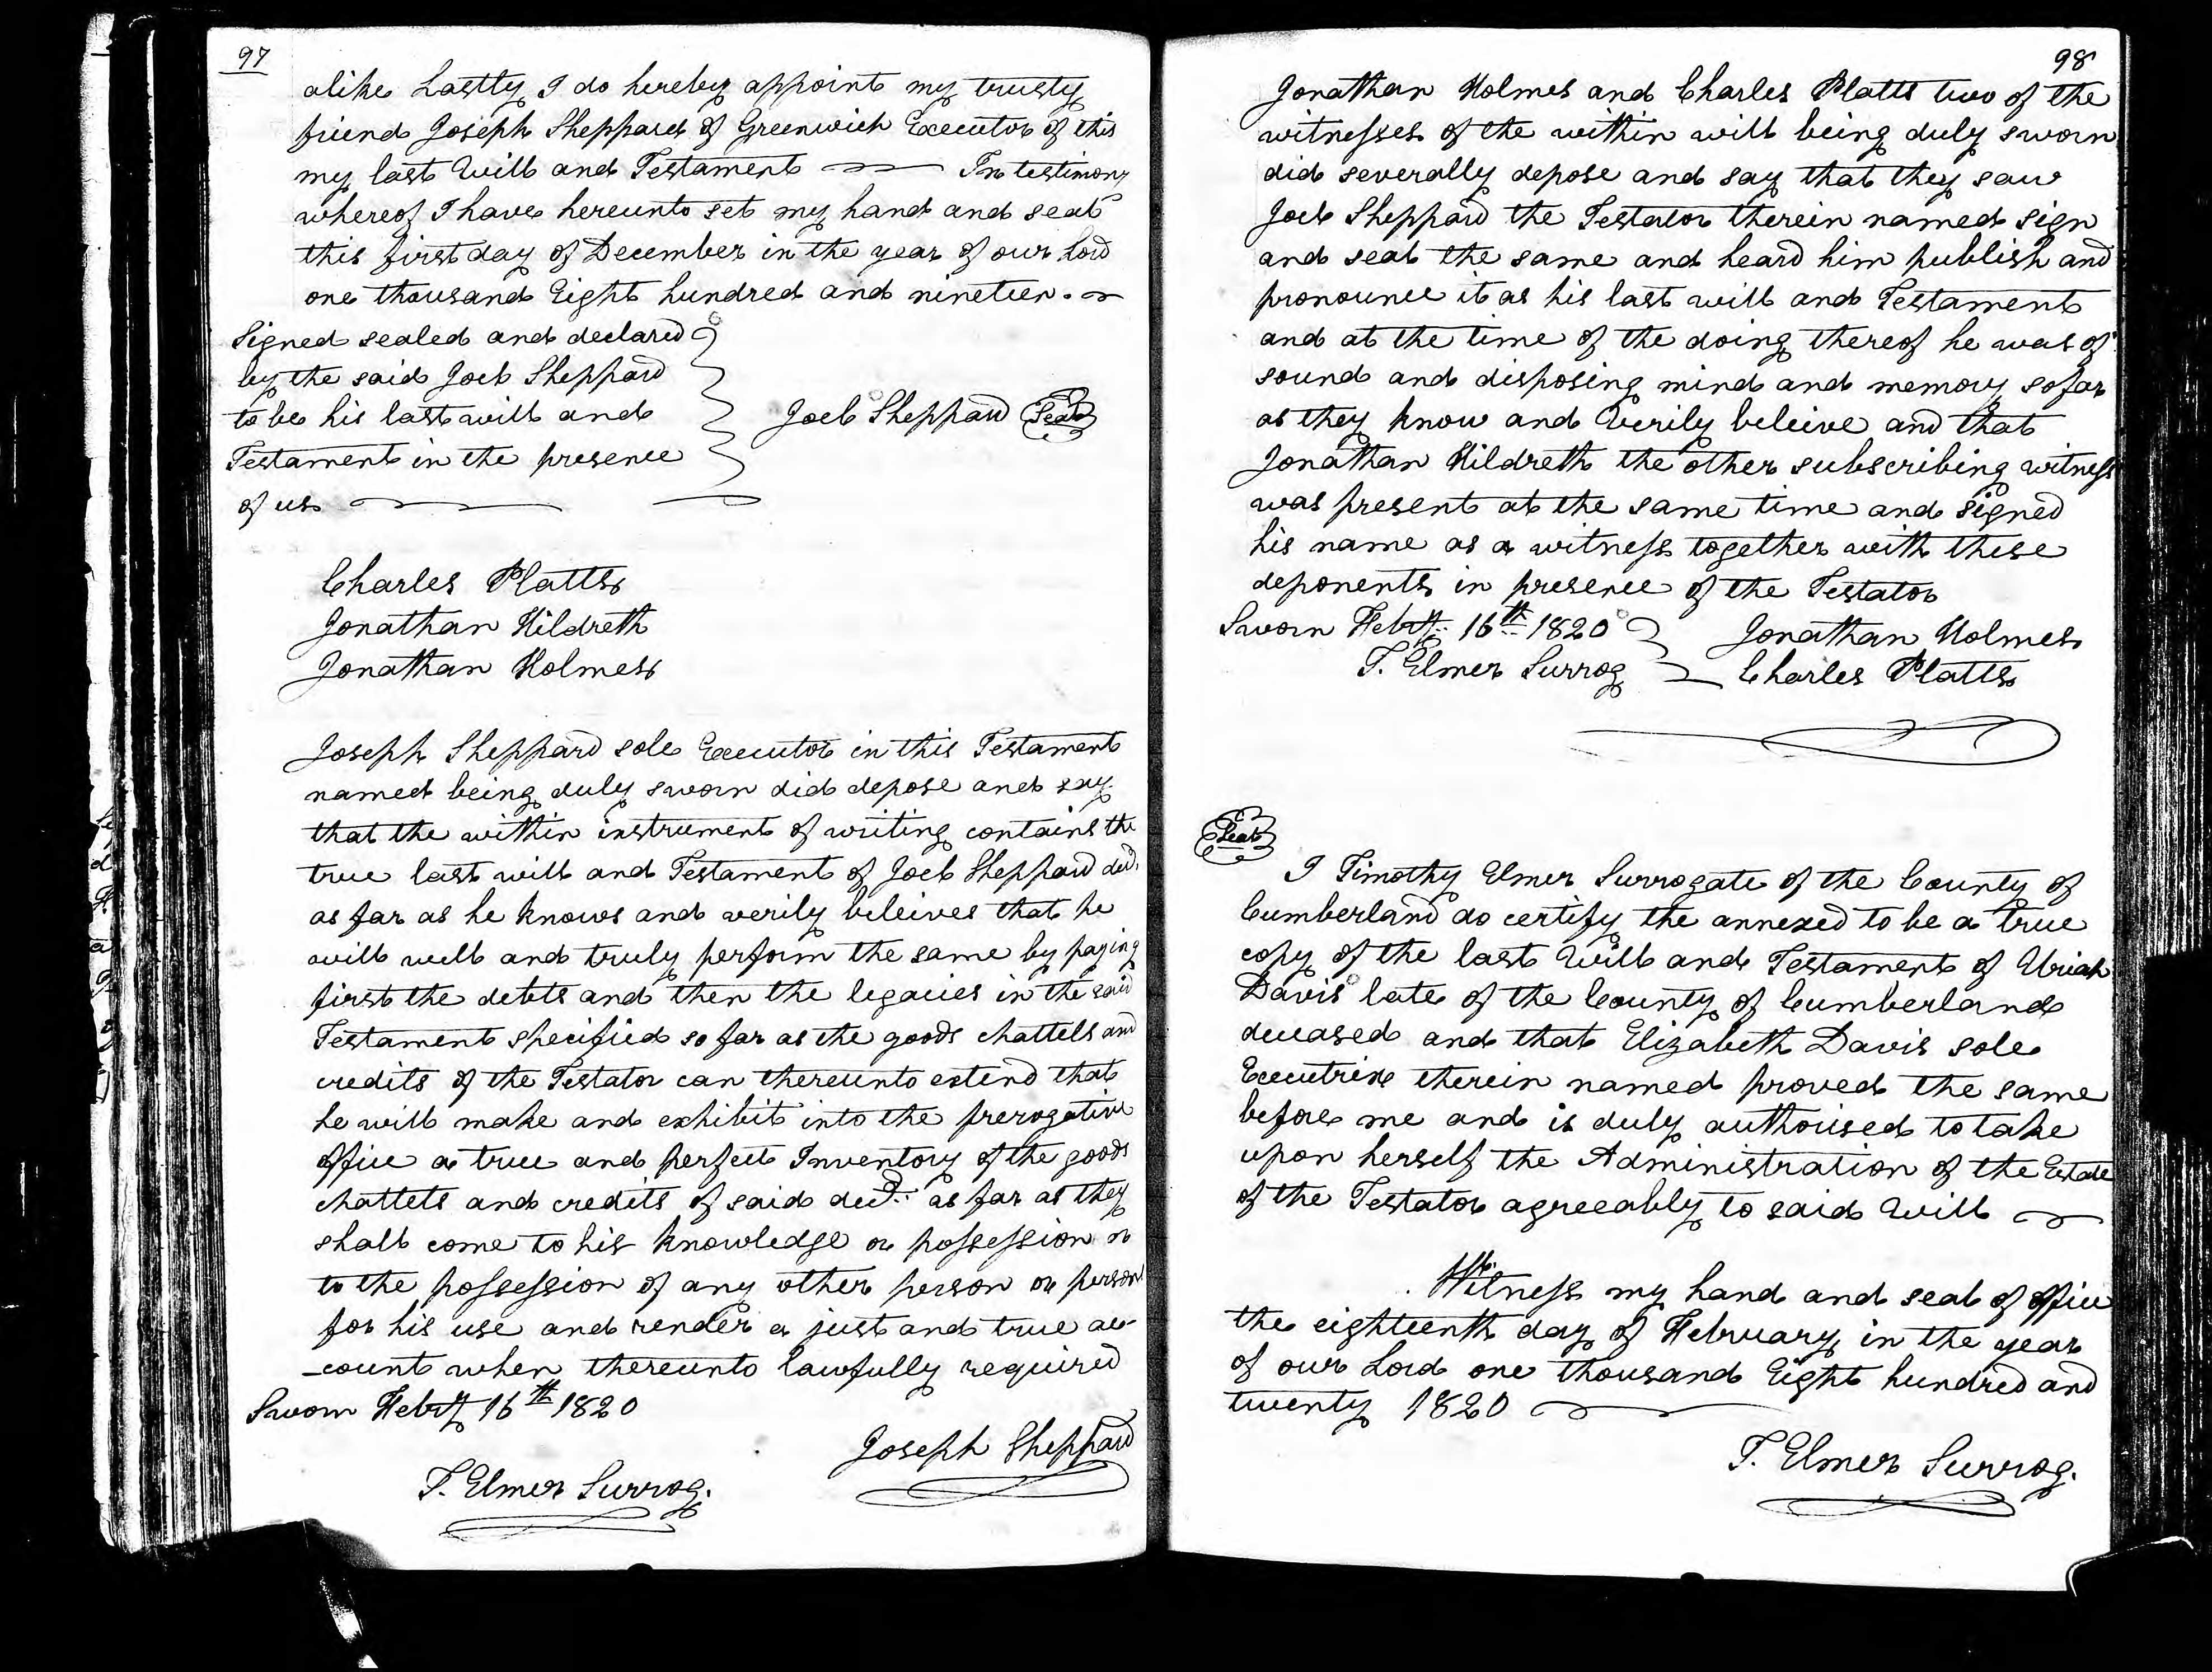 97
alike Lastly I do hereby appoint my trusty
friend Joseph Sheppard of Greenwich Executor of this
my last Will and Testament In testimony
whereof I have hereunto set my hand and seal
this first day of December in the year of our Lord
one thousand Eight hundred and nineteen.
Signed sealed and declared
by the said Joel Sheppard
to be his last will and
Joel Sheppard Seal
Testament in the presence
of us
Charles Platts
Jonathan Hildreth
Jonathan Holmes
Joseph Sheppard sole Executor in this Testament
named being duly sworn did depose and say
that the within instrument of writing contains the
true last will and Testament of Joel Sheppard decd.
as far as he knows and verily beleives that he
will well and truly perform the same by paying
first the debts and then the legacies in the said
Testament specified so far as the goods chattels and
credits of the Testator can thereunto extend that
he will make and exhibit into the prerogative
office a true and perfect Inventory of the goods
chattels and credits of said decd. as far as they
shall come to his knowledge or possession or
to the possession of any other person or persons
for his use and render a just and true ac-
-count when thereunto lawfully required
Sworn Febry 16th 1820
Joseph Sheppard
T. Elmer Surrog.
98
Jonathan Holmes and Charles Platts two of the
witnesses of the within will being duly sworn
did severally depose and say that they saw
Joel Sheppard the Testator therein named sign
and seal the same and heard him publish and
pronounce it as his last will and Testament
and at the time of the doing thereof he was of
sound and disposing mind and memory so far
as they know and Verily beleive and that
Jonathan Hildreth the other subscribing witness
was present at the same time and signed
his name as a witness together with these
deponents in presence of the Testator
Sworn Febry. 16th 1820 Jonathan Holmes
T. Elmer Surrog Charles Platts
Seal
I Timothy Elmer Surrogate of the County of
Cumberland do certify the annexed to be a true
copy of the last Will and Testament of Uriah
Davis late of the County of Cumberland
deceased and that Elizabeth Davis sole
Executrix therein named proved the same
before me and is duly authorised to take
upon herself the Administration of the Estate
of the Testator agreeably to said Will
Witness my hand and seal of office
the eighteenth day of February in the year
of our Lord one thousand Eight hundred and
twenty 1820
T. Elmer Surrog.